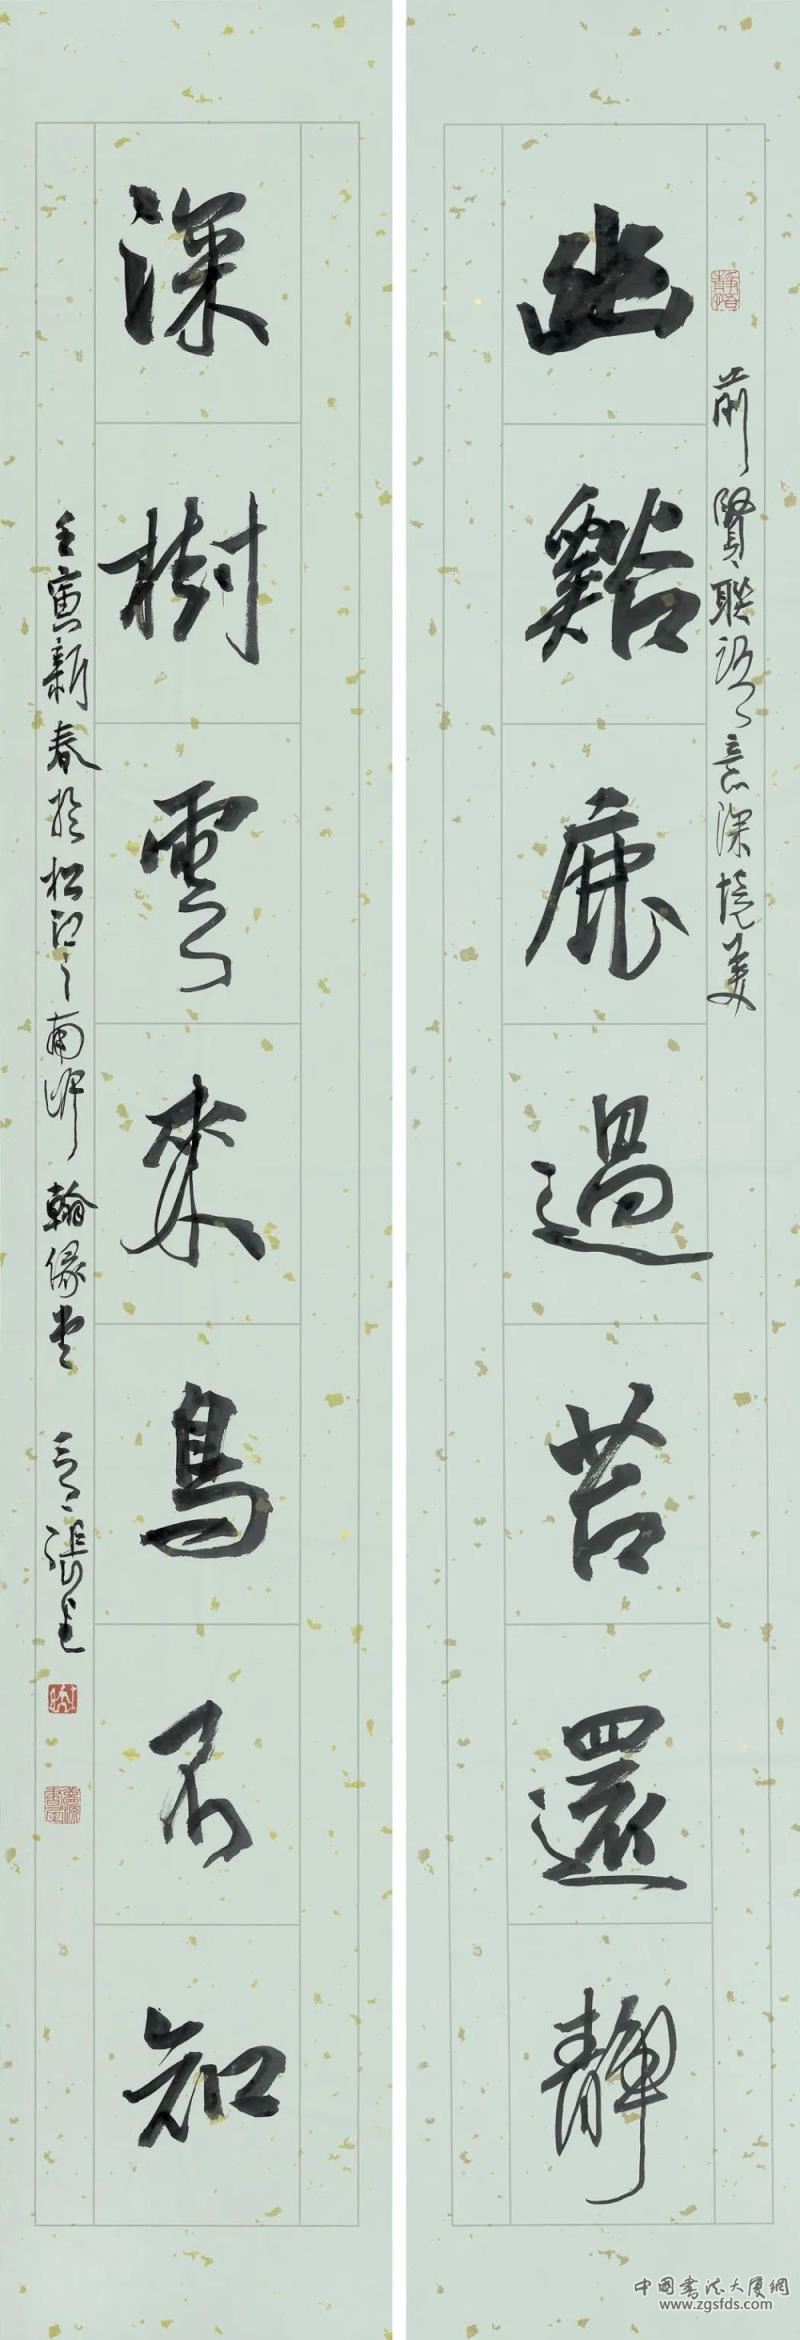 幽谿鹿過苔還靜
前賢聯語意深境美
深樹雲來鳥不知
壬寅新春於松江之南岸翰緣堂
中國書法大廈網
www.zgsfds.com